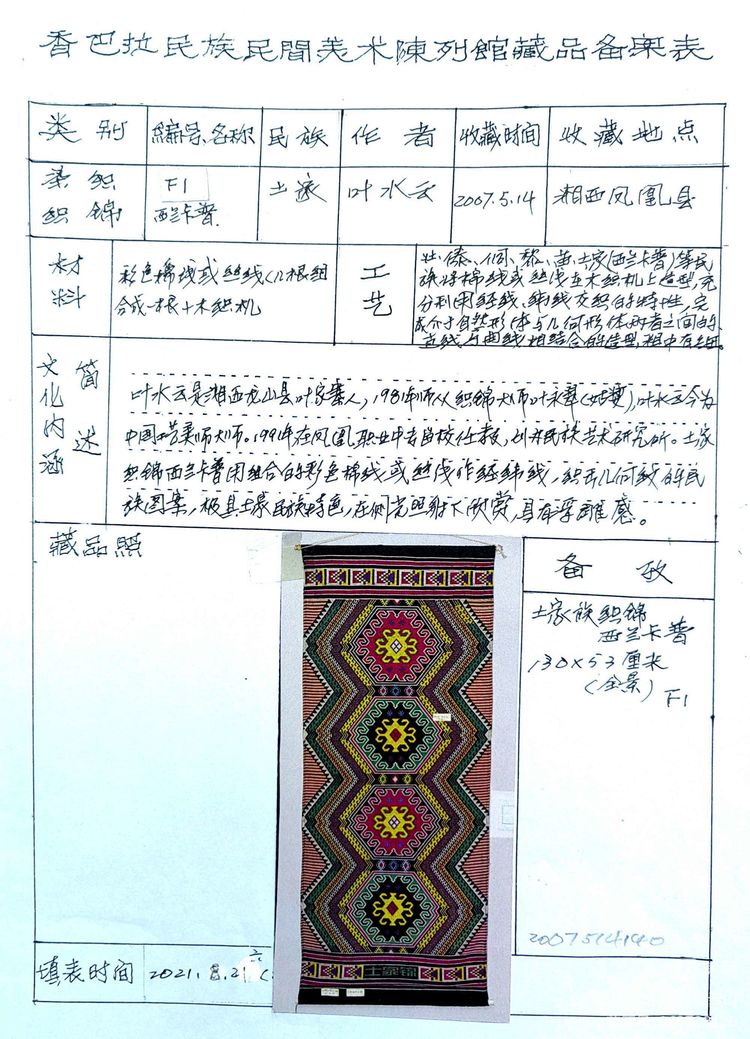 香巴拉民族民間美术陳列館藏品备案表
类别 編号、名称 民族 作者 收藏时间 收藏地点
染织 F1 土家 叶水云 2007.5.14 湘西凤凰县
织锦 西兰卡普
材料 彩色棉线或丝线(几根组
合成一根+木织机
工艺 壮、傣、侗、黎、苗、土家(西兰卡普)等民
族将棉线或丝线在木织机上造型,充
分利用经线、纬线交织的特性,完
成介于自然形体与几何形体两者之间的
直线与曲线相结合的造型,粗中有细。
文化内涵 简述
叶水云是湘西龙山县叶家寨人,1981年师从织锦大师叶玉翠(姑婆),叶水云今为
中国工艺美术大师。1991年在凤凰职业中专学校任教,创开民族艺术研究所。土家
织锦西兰卡普用组合的彩色棉线或丝线作经纬线,织出几何纹的民
族图案,极具土家民族特色,在侧光照射下欣赏,具有浮雕感。
藏品照
备攷
土家族织锦
西兰卡普
130×53厘米
(全景)
F1
土家锦
2007514140
填表时间 2021.8.21
六